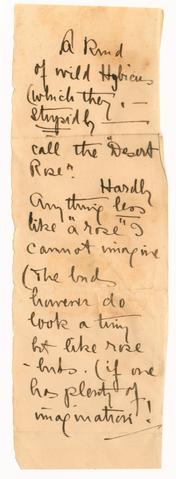 A kind
of wild Hybicus
(which they, —
stupidly —
call the "Desert
Rose".
Hardly
Anything less
like "a rose" I
cannot imagine
(The buds
however do
look a tiny
bit like rose
-buds. (if one
has plenty of
imagination!